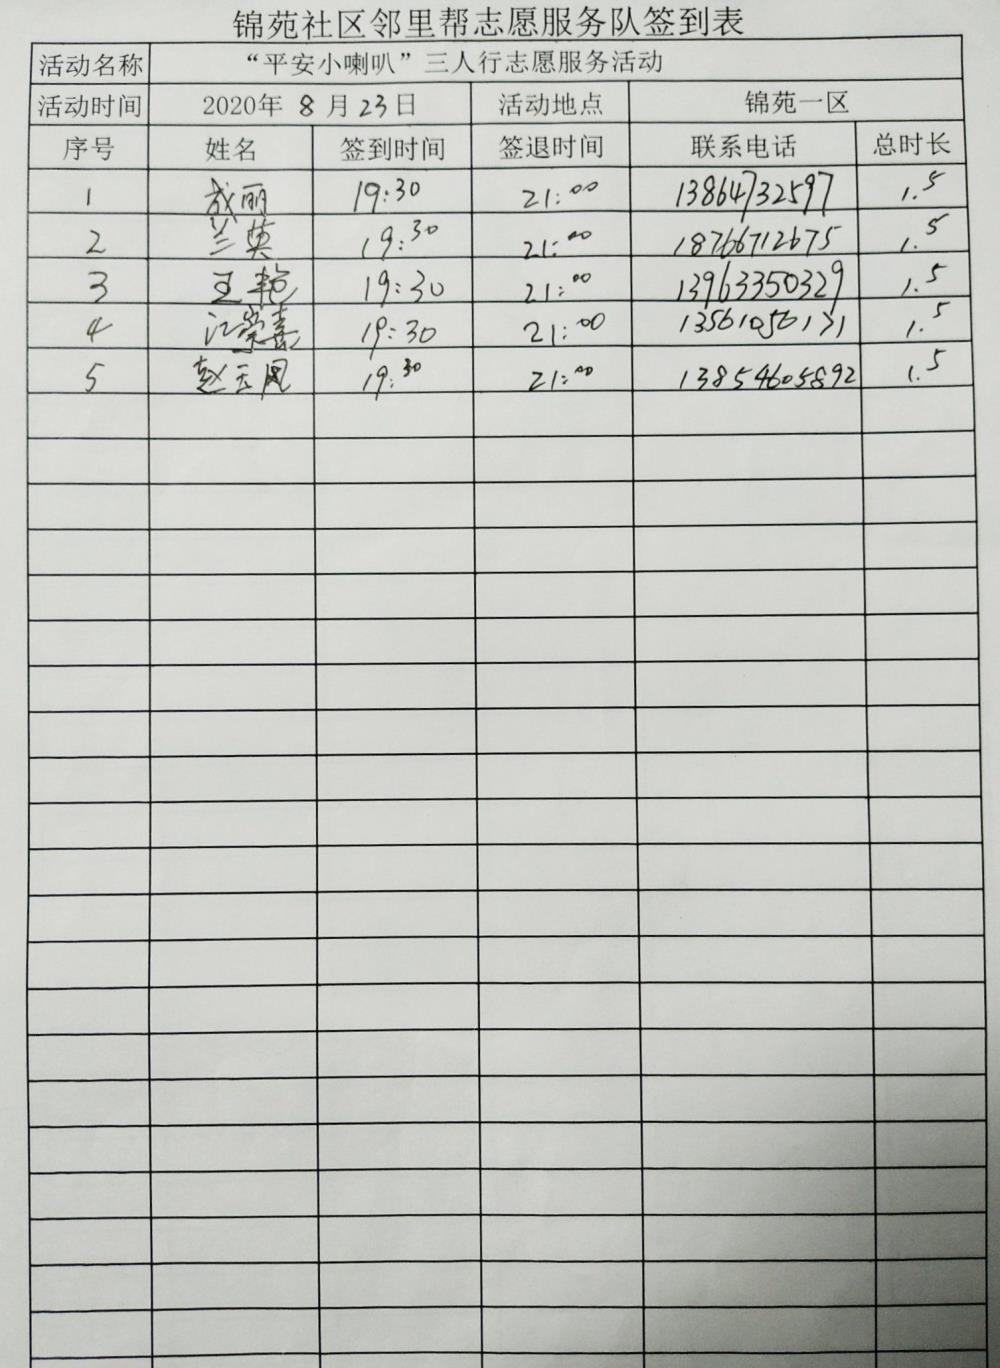 锦苑社区邻里帮志愿服务队签到表
活动名称 “平安小喇叭”三人行志愿服务活动
活动时间 2020年 8 月 23 日 活动地点 锦苑一区
序号 姓名 签到时间 签退时间 联系电话 总时长
1 成丽 19:30 21:00 13864732597 1.5
2 兰英 19:30 21:00 18766712675 1.5
3 王艳 19:30 21:00 13963350329 1.5
4 19:30 21:00 1.5
5 赵玉凤 19:30 21:00 13854605892 1.5